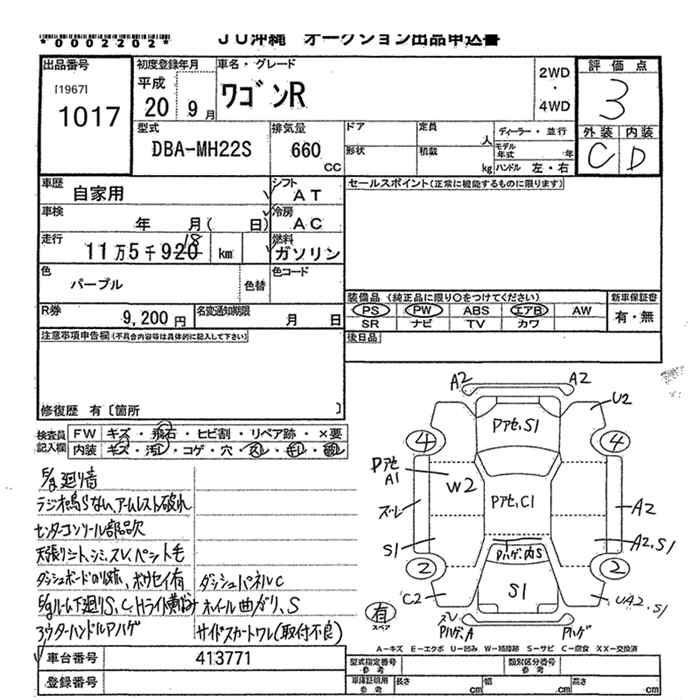 *0002202*
JU沖縄 オークション出品申込書
出品番号
[1967]
1017
初度登録年月
平成
20 9月
車名・グレード
ワゴンR
2WD
・
4WD
評価点
3
外装 内装
C D
型式
DBA-MH22S
排気量
660
CC
ドア
定員
人
形状
積載
kg
ディーラー・並行
モデル年式 年
ハンドル 左・右
車歴
自家用
シフト
AT
車検
年 月( 日)
冷房
AC
走行
11万5千920 km
18
燃料
ガソリン
色
パープル
色替
色コード
R券
9,200円
名変通知期限
月 日
セールスポイント(正常に機能するものに限ります)
装備品 (純正品に限り○をつけてください)
新車保証書
PS PW ABS エアB AW
SR ナビ TV カワ
有・無
後日品
注意事項申告欄(不具合内容等は具体的に記入して下さい)
修復歴 有〔箇所 〕
検査員記入欄
FW キズ・飛石・ヒビ割・リペア跡・×要
内装 キズ・汚レ・コゲ・穴・
ラジオ鳴Sない、アームレスト破れ
センターコンソール部品欠
天張りシート、シミ、スレ、ペット毛
ダッシュパネルC
ホイール曲ガリ、S
アウターハンドルアハゲ
サイドスカートワレ(取付不良)
A2
A2
U2
Pアセ,S1
4
4
Pアセ
A1
W2
Pアセ,C1
スレ
A2
S1
A2,S1
Pハゲ,内S
2
2
S1
C2
UA2,S1
有
スペア
スレ
Pハゲ,A
Pハゲ
A-キズ E-エクボ U-凹み W-補修跡 S-サビ C-腐食 XX-交換済
車台番号
413771
登録番号
型式指定番号
参考
類別区分番号
参考
車体証明用
参考
長さ cm 幅 cm 高さ cm